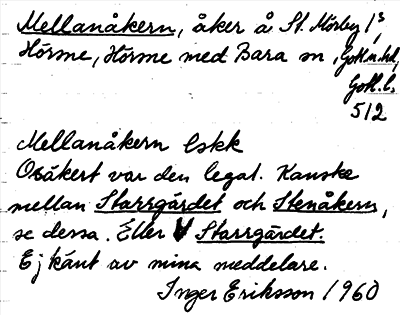 Mellanåkern, åker å St. Mörby 1³,
Hörsne, Hörsne med Bara sn, Gotl.n.hd,
Gotl.l.
5/2
Mellanåkern Lskk
Osäkert var den legat. Kanske
mellan Starrgärdet och Stenåkern,
se dessa. Eller V Starrgärdet.
Ej känt av mina meddelare.
Inger Eriksson 1960